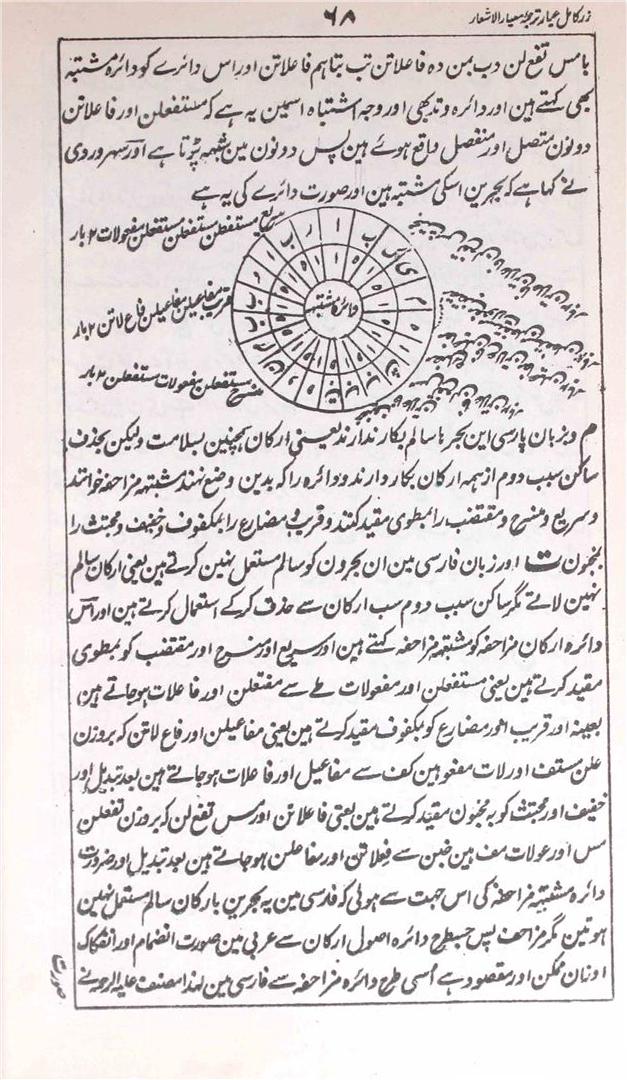 زرکامل عیار ترجمۂ معیار الاشعار
۶۸
یا مس تفع لن دب بمن ده فاعلاتن تب تباہم فاعلاتن اور اس دائرے کو دائرہ مشتبہ
بھی کہتے ہین اور دائرہ وتدبھی اور وجہ اشتباہ اسمین یہ ہے کہ مستفعلن اور فاعلاتن
دونون متصل اور منفصل واقع ہوئے ہین پس دونون مین شبہہ پڑتا ہے اور سہروردی
نے کہا ہے کہ بحرین اسکی مشتبہ ہین اور صورت دائرے کی یہ ہے
سریع مستفعلن مستفعلن مفعولات ۲ بار
قریب مفاعیلن مفاعیلن فاع لاتن ۲ بار
منسرح مستفعلن مفعولات مستفعلن ۲ بار
دائرہ مشتبہہ
م و بزبان پارسی این بحرہا سالم بکار ندارند یعنی ارکان ہمچنین بسلامت ولیکن بحذف
ساکن سبب دوم از ہمہ ارکان بکار دارند و دائرہ را کہ بدین وضع نہند مشتبہہ مزاحفہ خوانند
و سریع و منسرح و مقتضب را بمطوی مقید کنند و قریب و مضارع را بمکفوف و خفیف و مجتث را
بمخبون ت اور زبان فارسی مین ان بحرون کو سالم مستعمل نہین کرتے ہین یعنی ارکان سالم
نہین لاتے مگر ساکن سبب دوم سب ارکان سے حذف کرکے استعمال کرتے ہین اور اس
دائرہ ارکان مزاحفہ کو مشتبہہ مزاحفہ کہتے ہین اور سریع اور منسرح اور مقتضب کو بمطوی
مقید کرتے ہین یعنی مستفعلن اور مفعولات طے سے مفتعلن اور فاعلات ہوجاتے ہین
بعینہ اور قریب اور مضارع کو بمکفوف مقید کرتے ہین یعنی مفاعیلن اور فاع لاتن کہ بروزن
علن مستف اور لات مفعو ہین کف سے مفاعیل اور فاعلات ہوجاتے ہین بعد تبدیل اور
خفیف اور مجتث کو بہ مخبون مقید کرتے ہین یعنی فاعلاتن اور مس تفع لن کہ بروزن تفعلن
مس اور عولات مف ہین خبن سے فعلاتن اور مفاعلن ہوجاتے ہین بعد تبدیل اور ضرورت
دائرہ مشتبہہ مزاحفہ کی اس جہت سے ہوئی کہ فارسی مین یہ بحرین بارکان سالم مستعمل نہین
ہوتین مگر مزاحف پس جسطرح دائرہ اصول ارکان سے عربی مین صورت انضمام اور انفکاک
اوزان ممکن اور مقصود ہے اُسی طرح دائرہ مزاحفہ سے فارسی مین لہذا مصنف علیہ الرحمہ نے